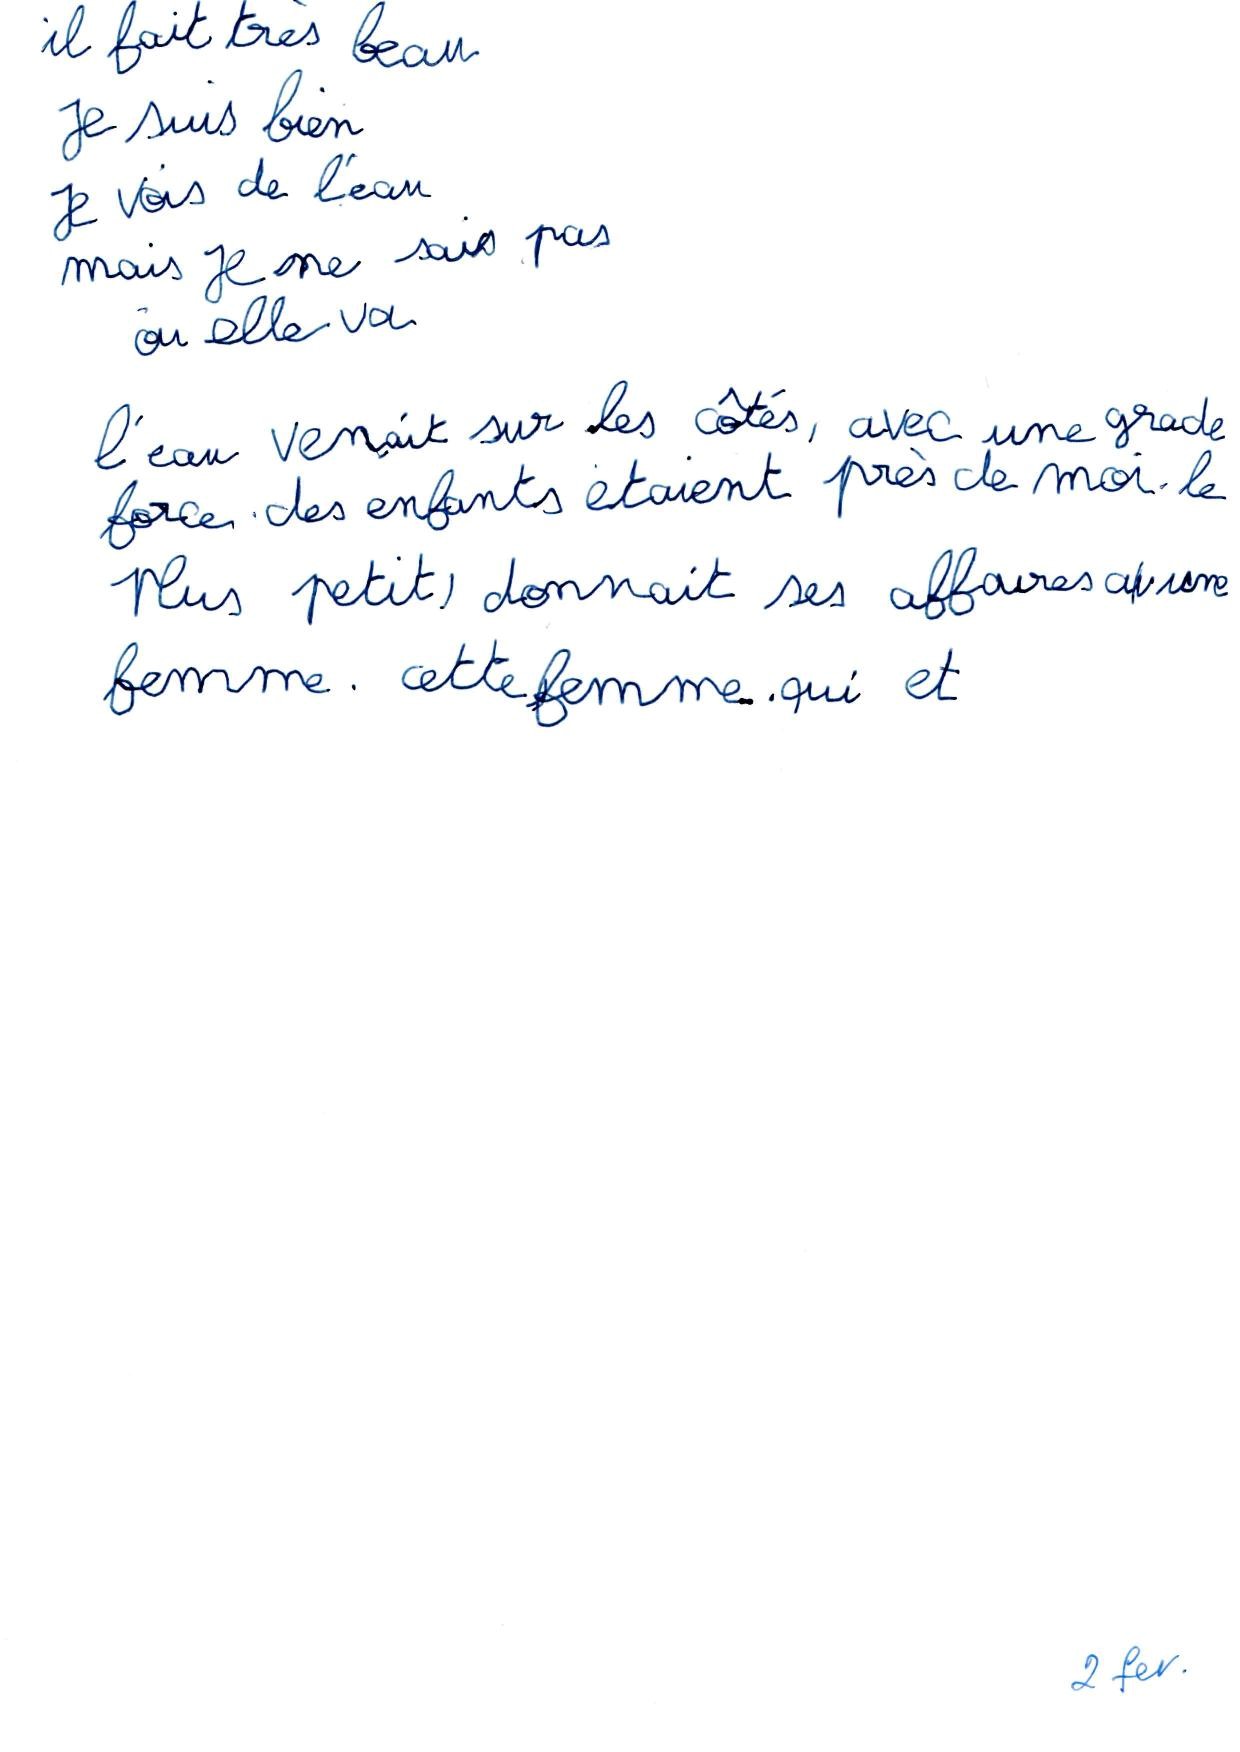 il fait très beau
Je suis bien
Je vois de l'eau
mais Je ne sais pas
ou elle va
l'eau venait sur les côtés, avec une grade
force. des enfants étaient près de moi. le
Plus petit, donnait ses affaires a une
femme. cette femme. qui et
2 fev.